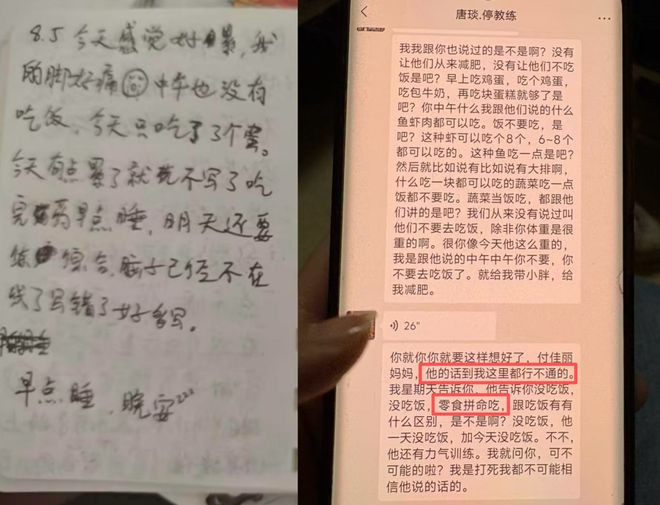 8.5 今天感觉好累,我
的脚好痛 中午也没有
吃饭,今天只吃了了个蛋。
今天有点累了就不写了吃
完药早点睡,明天还要
练 综合,脑子已经不在
线了写错了好多写。
早点睡,晚安zzz
唐琰.停教练
我我跟你也说过的是不是啊?没有
让他们从来减肥,没有让他们不吃
饭是吧?早上吃鸡蛋,吃个鸡蛋,
吃包牛奶,再吃块蛋糕就够了是
吧?你中午什么我跟他们说的什么
鱼虾肉都可以吃。饭不要吃,是
吧?这种虾可以吃个8个,6~8个
都可以吃的。这种鱼吃一点是吧?
然后就比如说有比如说有大排啊,
什么吃一块都可以吃的蔬菜吃一点
饭都不要吃。蔬菜当饭吃,都跟他
们讲的是吧?我们从来没有说过叫
他们不要去吃饭,除非你体重是很
重的啊。很你像今天他这么重的,
我是跟他说的中午中午你不要,你
不要去吃饭了。就给我带小胖,给
我减肥。
26"
你就你你就要这样想好了,付佳丽
妈妈,他的话到我这里都行不通的。
我星期天告诉你,他告诉你没吃饭,
没吃饭,零食拼命吃,跟吃饭有有
什么区别,是不是啊?没吃饭,他
一天没吃饭,加今天没吃饭。不不,
他还有力气训练。我就问你,可不
可能的啦?我是打死我都不可能相
信他说的话的。